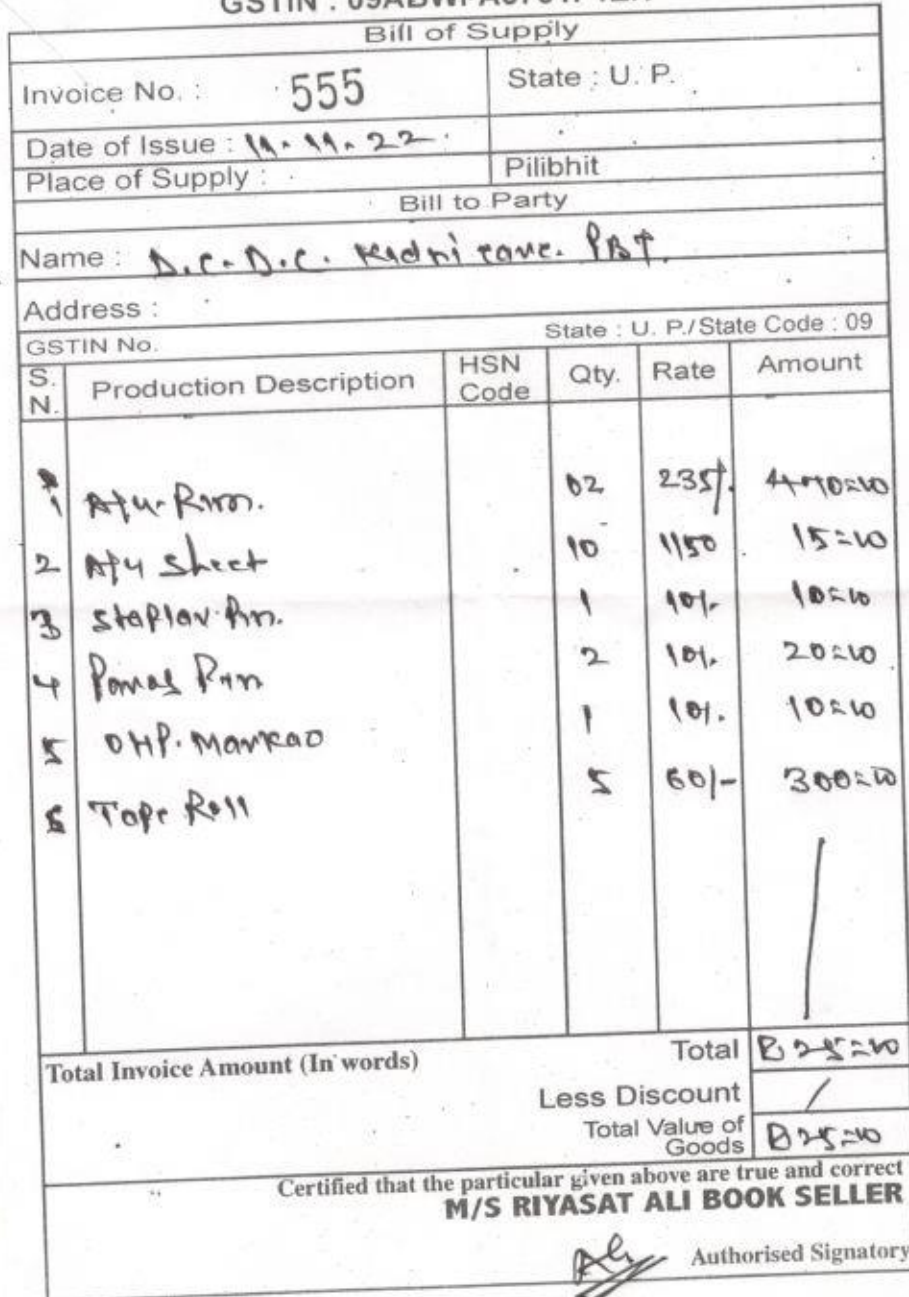 Bill of Supply
Invoice No. : 555 State : U. P.
Date of Issue : 11.11.22.
Place of Supply : Pilibhit
Bill to Party
Name : D.C.D.C. PBT.
Address :
GSTIN No. State : U. P./State Code : 09
S. N. Production Description HSN Code Qty. Rate Amount
1 A/4 Rim. 02 235/. 470=00
2 A/4 Sheet 10 1/50 15=00
3 Staplar Pin. 1 10/- 10=00
4 Pin 2 10/. 20=00
5 OHP. Markar 1 10/. 10=00
6 Tape Roll 5 60/- 300=00
Total Invoice Amount (In words) Total 825=00
Less Discount /
Total Value of Goods 825=00
Certified that the particular given above are true and correct
M/S RIYASAT ALI BOOK SELLER
Authorised Signatory